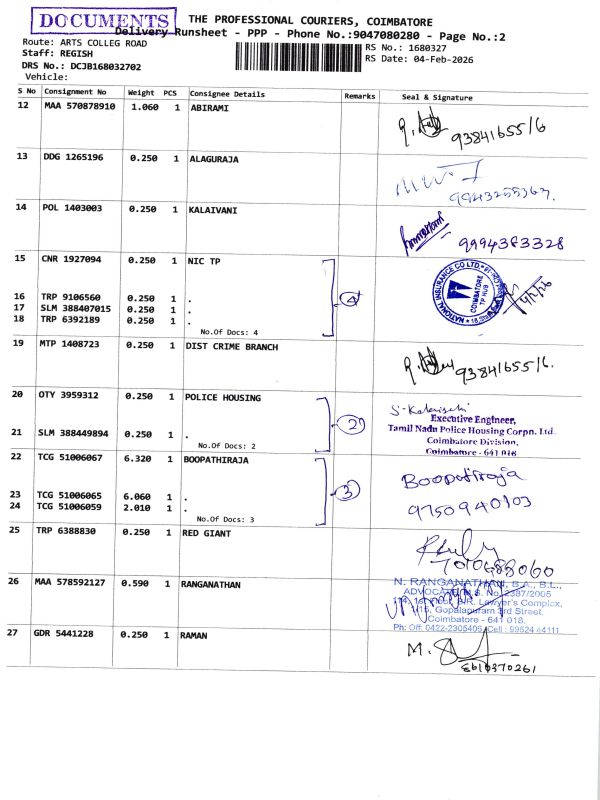 DOCUMENTS
THE PROFESSIONAL COURIERS, COIMBATORE
Delivery Runsheet - PPP - Phone No.:9047080280 - Page No.:2
Route: ARTS COLLEG ROAD
RS No.: 1680327
Staff: REGISH
RS Date: 04-Feb-2026
DRS No.: DCJB168032702
Vehicle:
S No Consignment No Weight PCS Consignee Details Remarks Seal & Signature
12 MAA 570878910 1.060 1 ABIRAMI
9384165516
13 DDG 1265196 0.250 1 ALAGURAJA
9943255367.
14 POL 1403003 0.250 1 KALAIVANI
9994383328
15 CNR 1927094 0.250 1 NIC TP
NATIONAL INSURANCE CO LTD.
COIMBATORE
TP HUB
16 TRP 9106560 0.250 1 .
4
17 SLM 388407015 0.250 1 .
18 TRP 6392189 0.250 1 .
No.Of Docs: 4
19 MTP 1408723 0.250 1 DIST CRIME BRANCH
9384165516.
20 OTY 3959312 0.250 1 POLICE HOUSING
2
Executive Engineer,
Tamil Nadu Police Housing Corpn. Ltd.
21 SLM 388449894 0.250 1 .
Coimbatore Division,
No.Of Docs: 2
Coimbatore - 641 018
22 TCG 51006067 6.320 1 BOOPATHIRAJA
Boopatiraja
23 TCG 51006065 6.060 1 .
3
24 TCG 51006059 2.010 1 .
9750940103
No.Of Docs: 3
25 TRP 6388830 0.250 1 RED GIANT
7010488060
26 MAA 578592127 0.590 1 RANGANATHAN
N. RANGANATHAN, B.A., B.L.,
ADVOCATE M.S. No. 2387/2005
Lawyer's Complex,
Gopalapuram 3rd Street,
Coimbatore - 641 018.
Ph: Off: 0422-2305405, Cell : 99524 44111
27 GDR 5441228 0.250 1 RAMAN
M.
8610370261